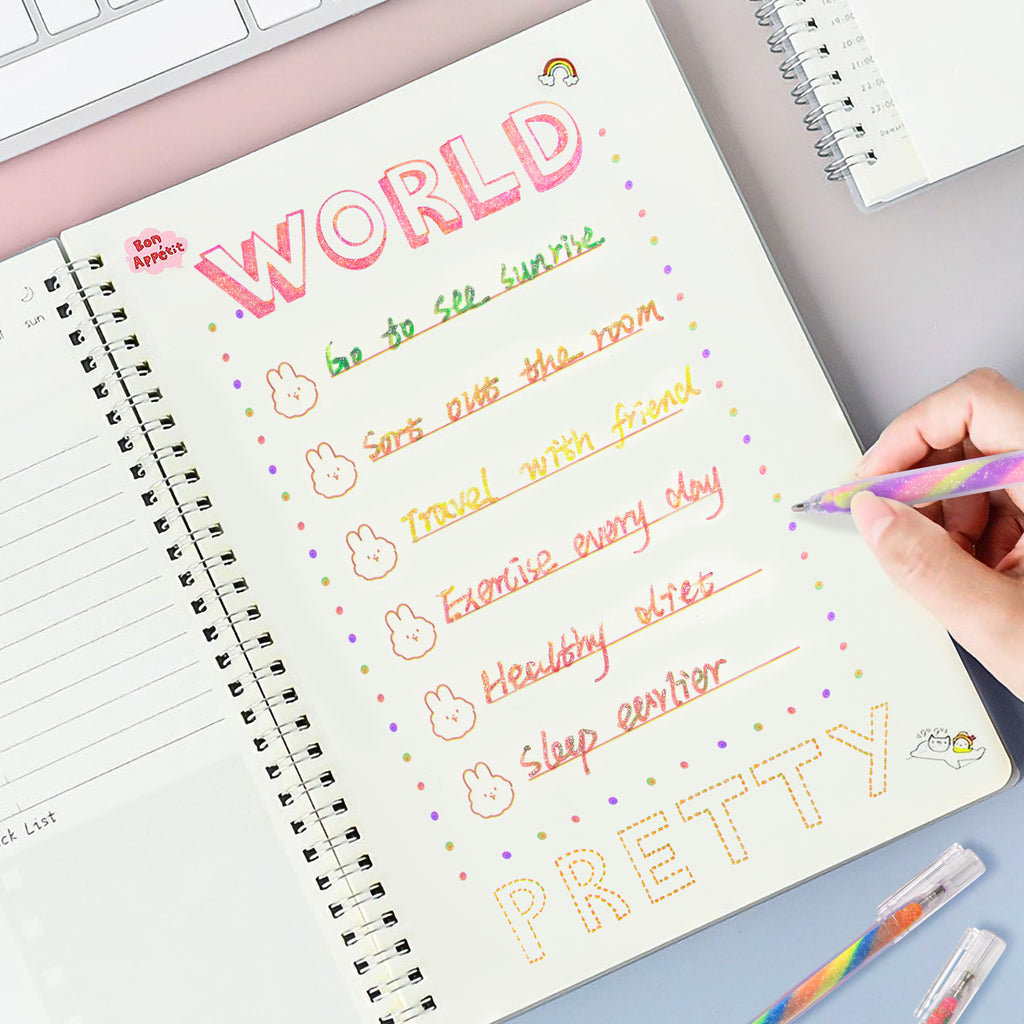 WORLD
Bon
Appétit
Go to see sunrise
Sort out the room
Travel with friend
Exercise every day
Healthy diet
Sleep earlier
PRETTY
sun
ck List
19:00
20:00
21:00
22:00
23:00